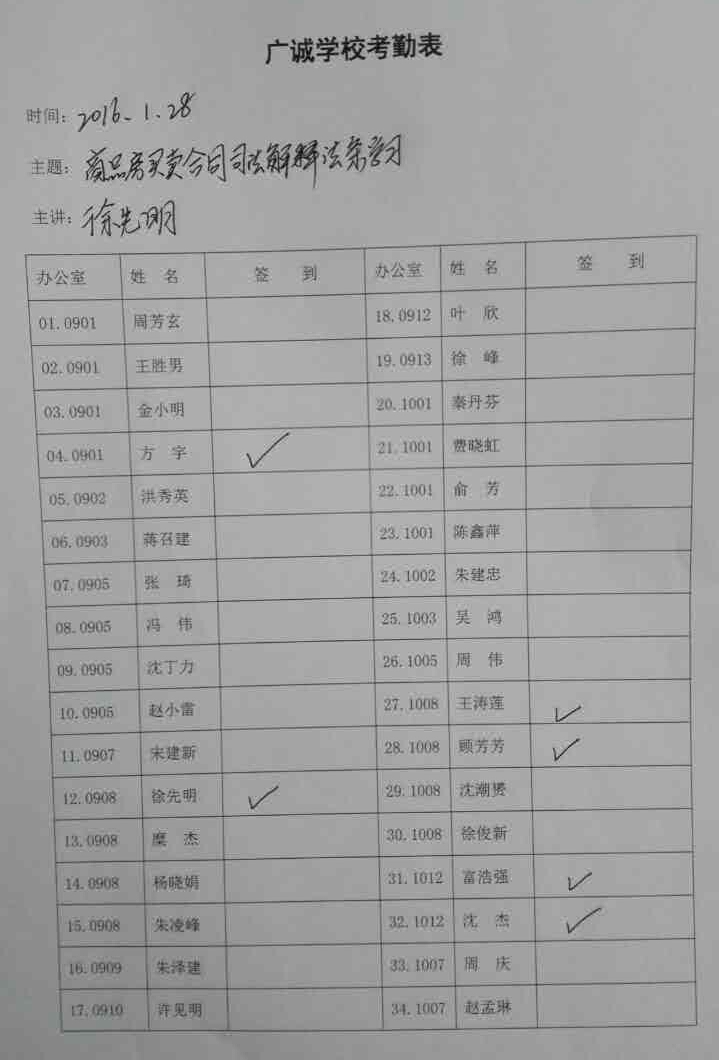 广诚学校考勤表
时间: 2016.1.28
主题: 商品房买卖合同司法解释法条学习
主讲: 徐先明
办公室 姓 名 签 到 办公室 姓 名 签 到
01.0901 周芳玄 18.0912 叶 欣
02.0901 王胜男 19.0913 徐 峰
03.0901 金小明 20.1001 秦丹芬
04.0901 方 宇 ✓ 21.1001 费晓虹
05.0902 洪秀英 22.1001 俞 芳
06.0903 蒋召建 23.1001 陈鑫萍
07.0905 张 琦 24.1002 朱建忠
08.0905 冯 伟 25.1003 吴 鸿
09.0905 沈丁力 26.1005 周 伟
10.0905 赵小雷 27.1008 王涛莲 ✓
11.0907 宋建新 28.1008 顾芳芳 ✓
12.0908 徐先明 ✓ 29.1008 沈潮赟
13.0908 糜 杰 30.1008 徐俊新
14.0908 杨晓娟 31.1012 富浩强 ✓
15.0908 朱凌峰 32.1012 沈 杰 ✓
16.0909 朱泽建 33.1007 周 庆
17.0910 许见明 34.1007 赵孟琳